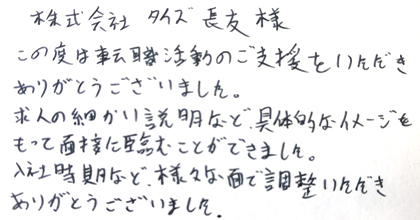 株式会社 タイズ 長友 様
この度は転職活動のご支援をいただき
ありがとうございました。
求人の細かい説明など、具体的なイメージを
もって面接に臨むことができました。
入社時期など、様々な面で調整いただき
ありがとうございました。